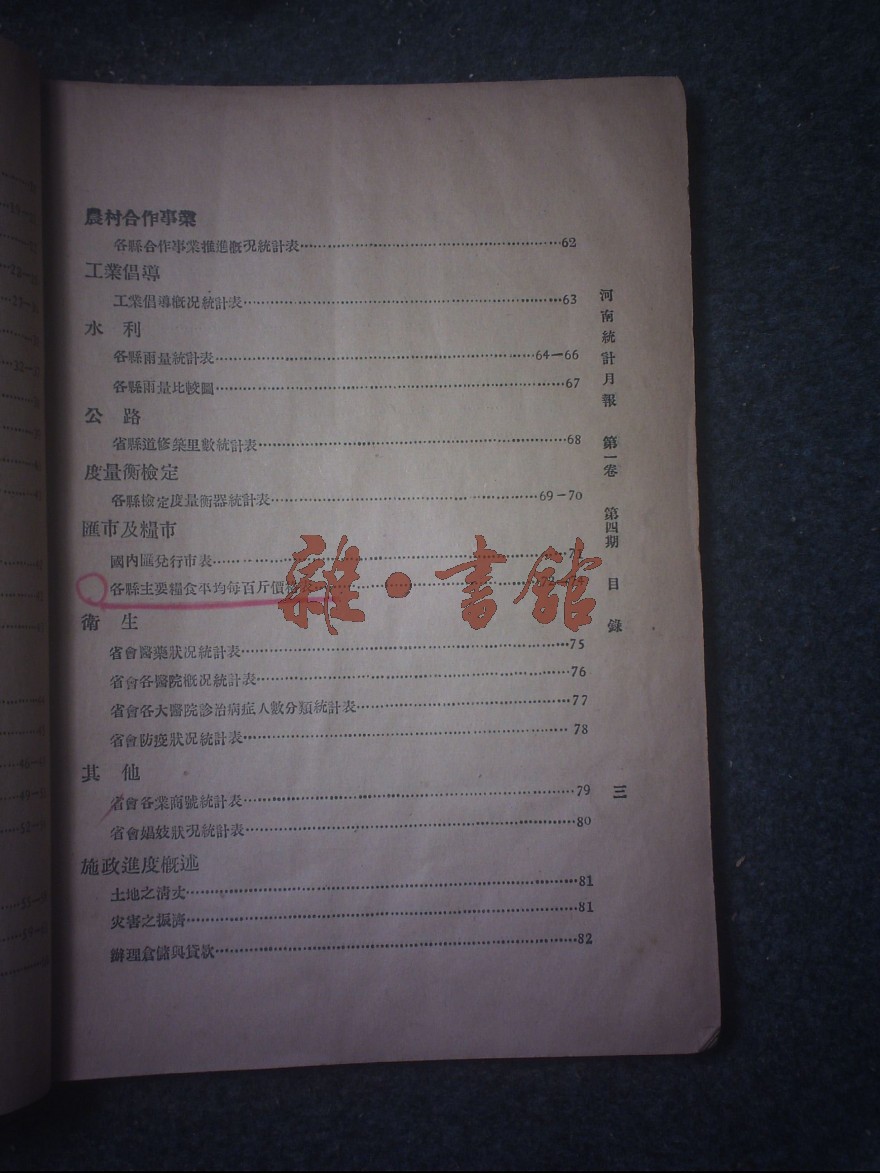 農村合作事業
各縣合作事業推進概况統計表……62
工業倡導
工業倡導概况統計表……63
水 利
各縣雨量統計表……64—66
各縣雨量比較圖……67
公 路
省縣道修築里數統計表……68
度量衡檢定
各縣檢定度量衡器統計表……69—70
匯市及糧市
國内匯兌行市表……71
各縣主要糧食平均每百斤價格……72
衛 生
省會醫藥狀况統計表……75
省會各醫院概况統計表……76
省會各大醫院診治病症人數分類統計表……77
省會防疫狀况統計表……78
其 他
省會各業商號統計表……79
省會娼妓狀况統計表……80
施政進度概述
土地之清丈……81
灾害之振濟……81
辦理倉儲與貸款……82
河南統計月報 第一卷 第四期 目錄
三
雜·書館